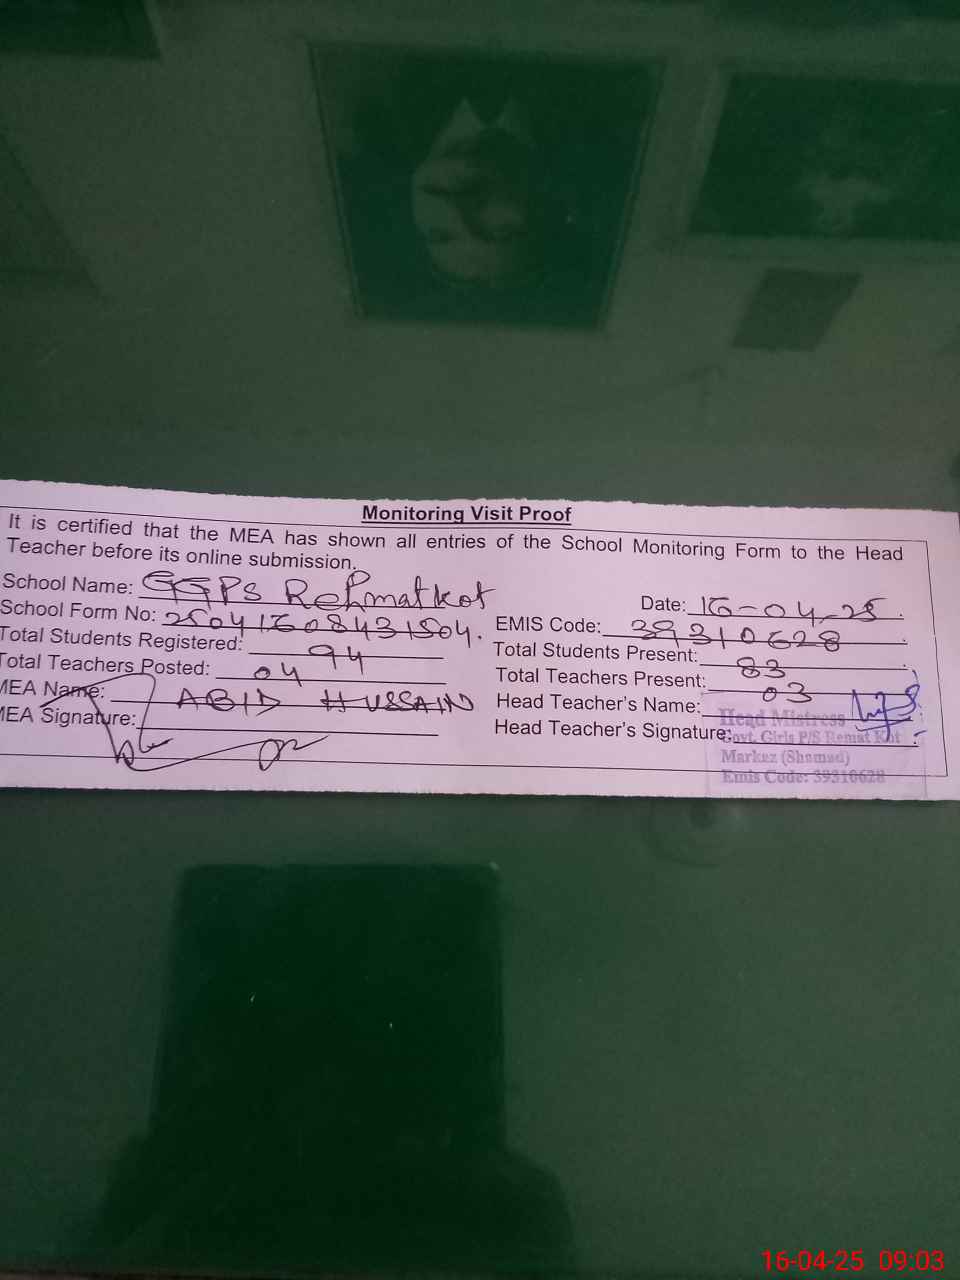 Monitoring Visit Proof
It is certified that the MEA has shown all entries of the School Monitoring Form to the Head
Teacher before its online submission.
School Name: GGPS Rehmatkot
Date: 16-04-25
School Form No: 25041608431504.
EMIS Code: 39310628
Total Students Registered: 94
Total Students Present: 83
Total Teachers Posted: 04
Total Teachers Present: 03
MEA Name: ABID HUSSAIN
Head Teacher's Name:
MEA Signature:
Head Teacher's Signature:
Head Mistress
Govt. Girls P/S Remat Kot
Markez (Shamad)
Emis Code: 39310628
16-04-25 09:03